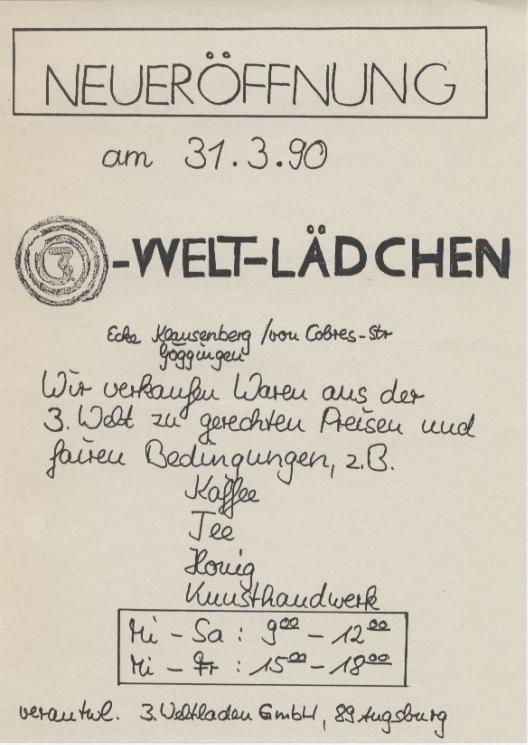 NEUERÖFFNUNG
am 31.3.90
3.-WELT-LÄDCHEN
Ecke Klausenberg / von Cobres-Str
Göggingen
Wir verkaufen Waren aus der
3. Welt zu gerechten Preisen und
fairen Bedingungen, z.B.
Kaffee
Tee
Honig
Kunsthandwerk
Mi - Sa : 9⁰⁰ - 12⁰⁰
Mi - Fr : 15⁰⁰ - 18⁰⁰
verantwl. 3. Weltladen GmbH, 89 Augsburg